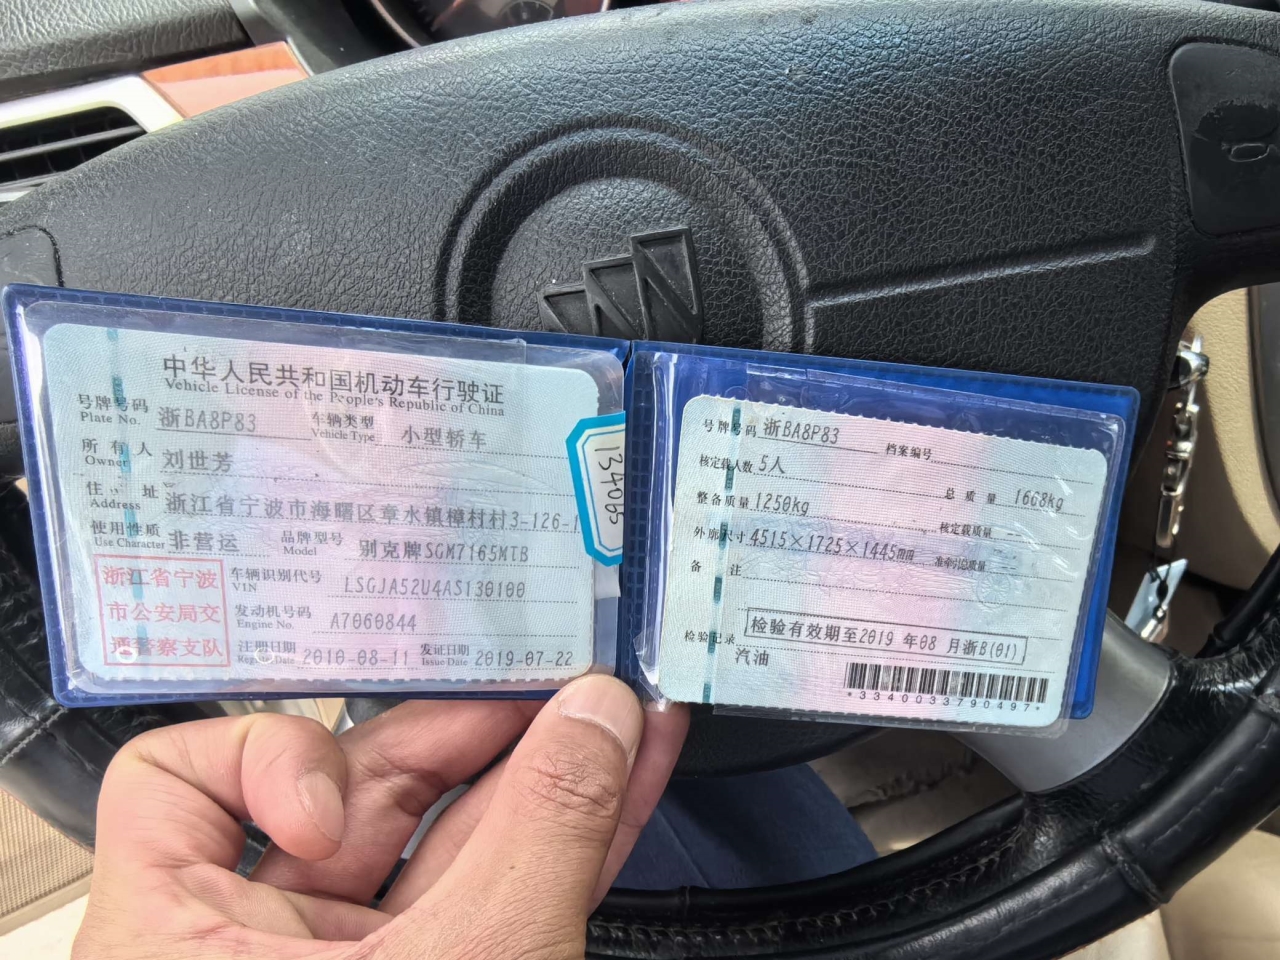 中华人民共和国机动车行驶证
Vehicle License of the People's Republic of China
号牌号码 浙BA8P83 车辆类型 小型轿车
Plate No. Vehicle Type
所有人 刘世芳
Owner
住址 浙江省宁波市海曙区章水镇樟村村3-126-
Address
使用性质 非营运 品牌型号 别克牌SGM7165MTB
Use Character Model
浙江省宁波市公安局交通警察支队
车辆识别代号 LSGJA52U4AS130100
VIN
发动机号码 A7060844
Engine No.
注册日期 2010-08-11 发证日期 2019-07-22
Register Date Issue Date
134065
号牌号码 浙BA8P83 档案编号
核定载人数 5人 总质量 1668kg
整备质量 1250kg 核定载质量 --
外廓尺寸 4515×1725×1445mm 准牵引总质量 --
备注
检验有效期至2019年08月浙B(01)
检验记录
汽油
*3340033790497*